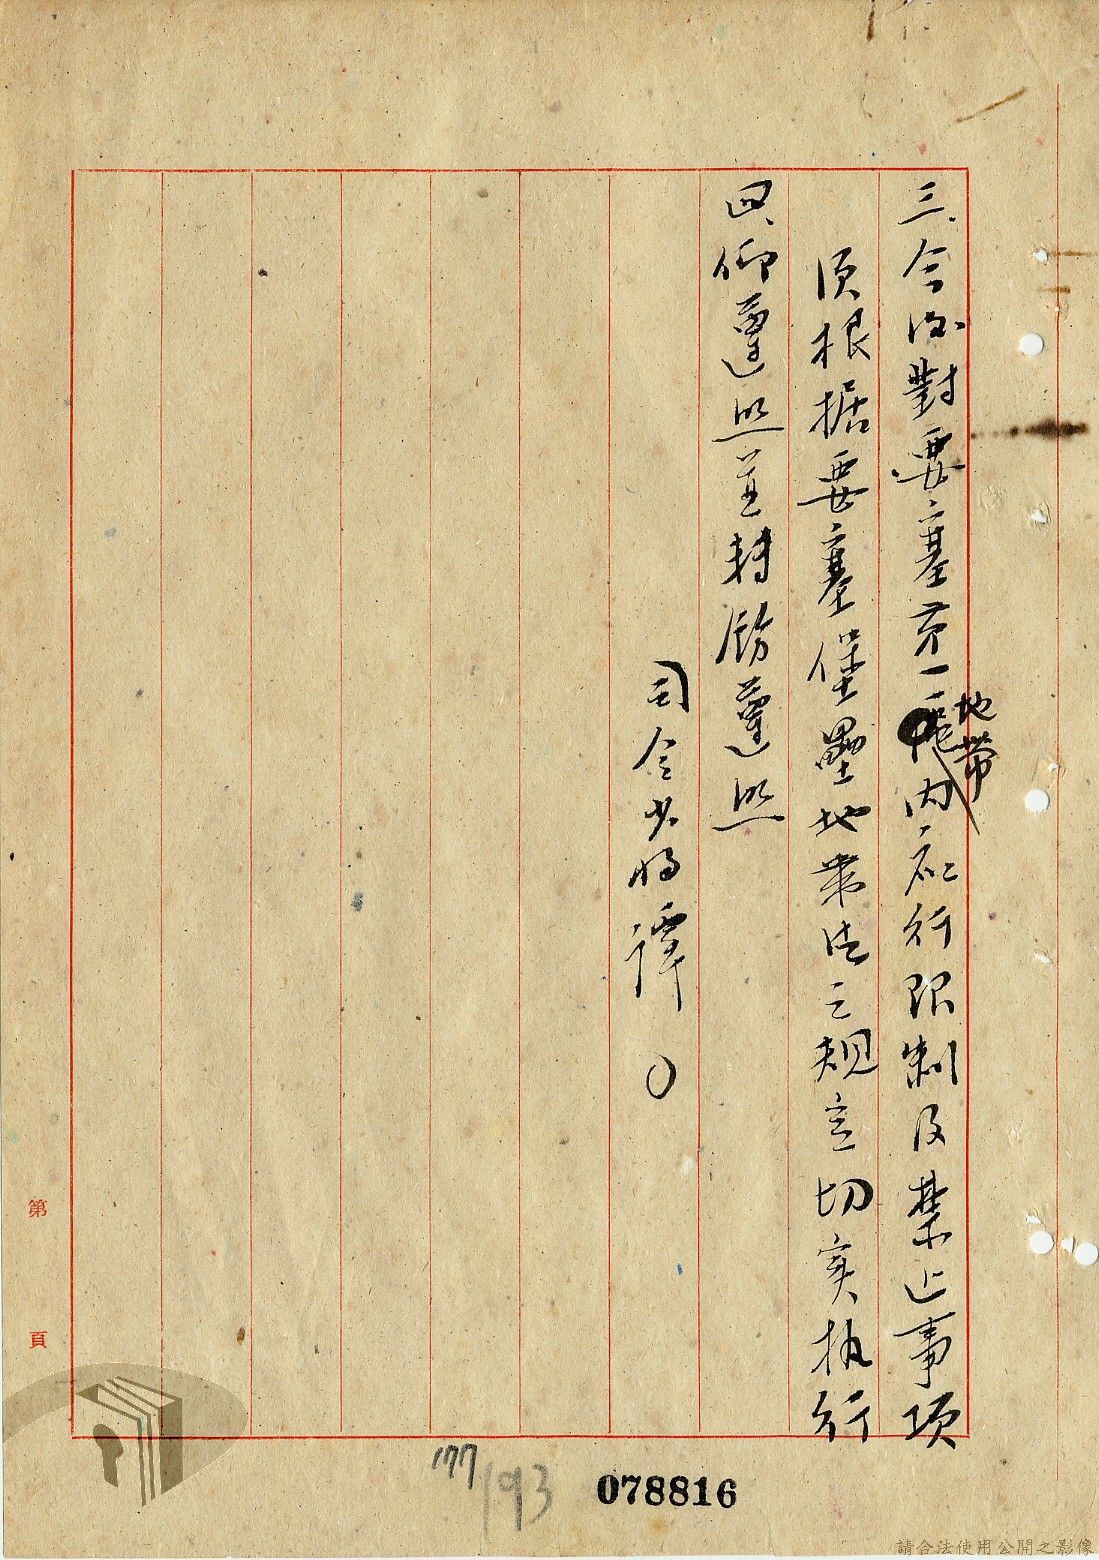 三、今後對要塞第一地帶內施行限制及禁止事項
須根据要塞堡壘地帶法之規定切实执行
四、仰遵照並转飭遵照
司令少将譚○
第 頁
177
193
078816
請合法使用公開之影像